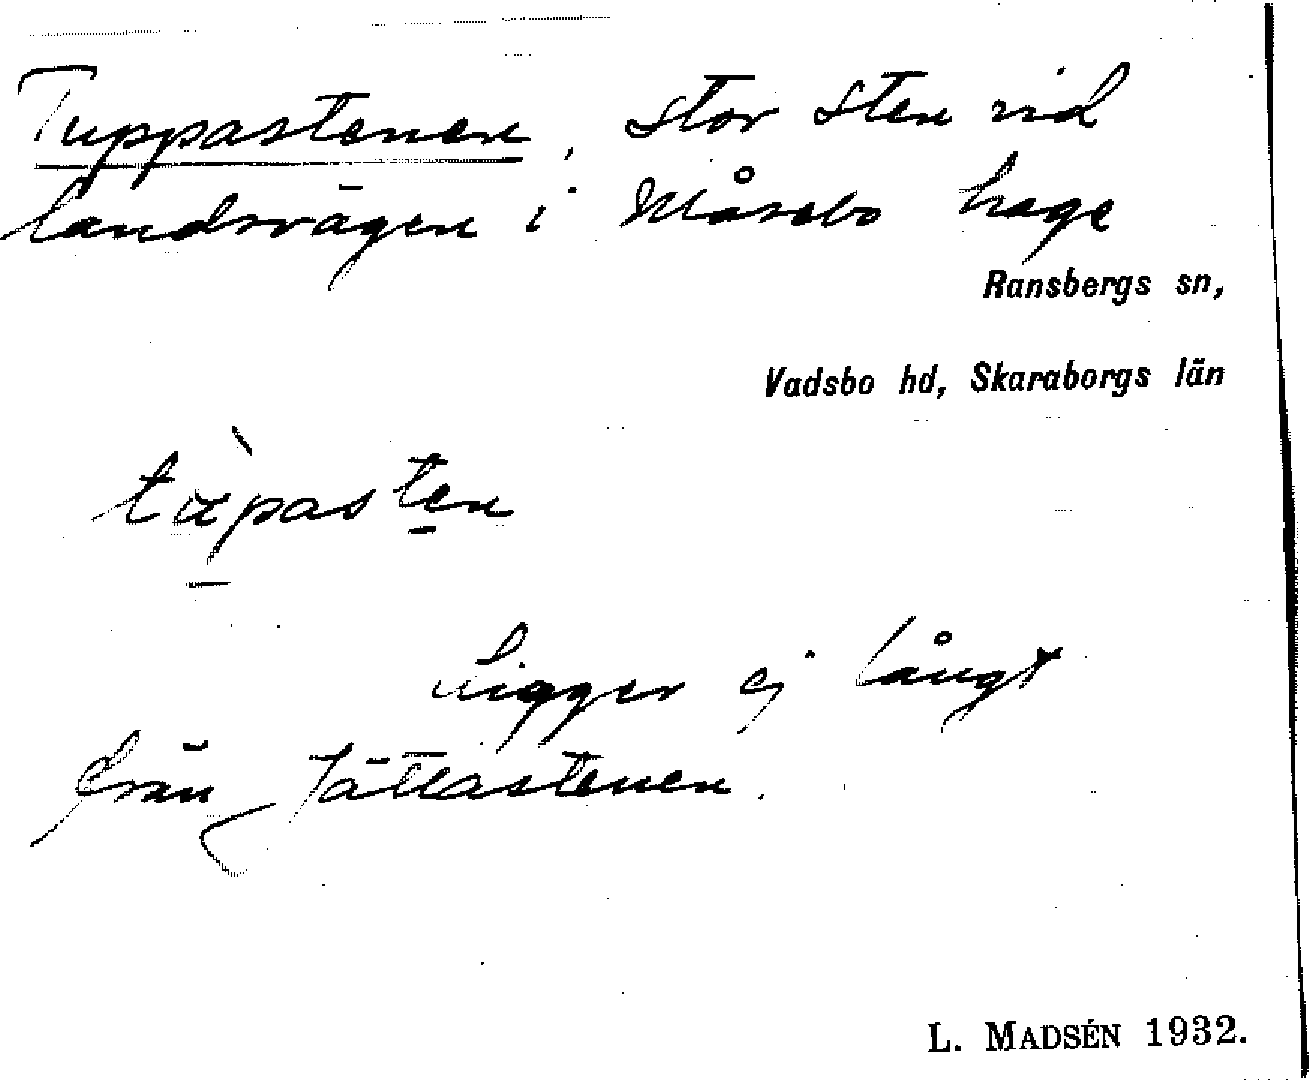 Tuppastenen, stor sten vid
landsvägen i Måsebo hage
Ransbergs sn,
Vadsbo hd, Skaraborgs län
Ligger ej långt
från Jättastenen.
L. MADSÉN 1932.